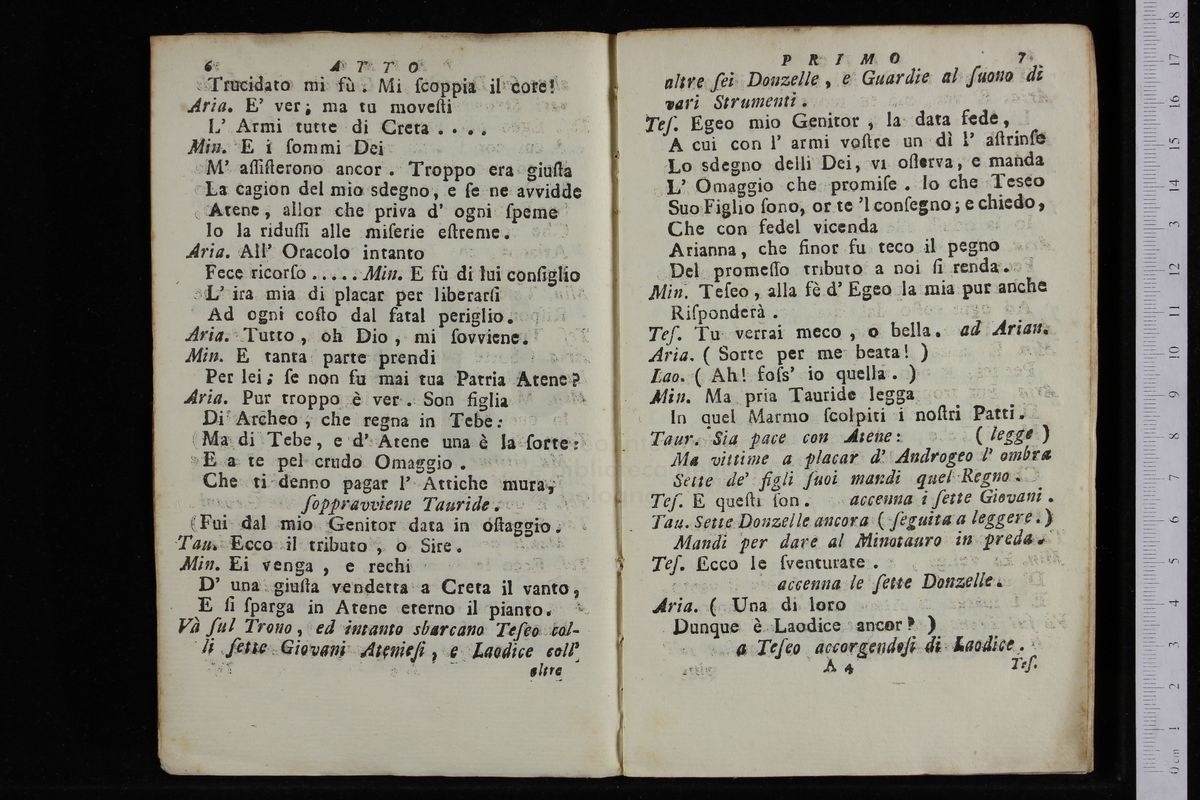 6 ATTO
Trucidato mi fù. Mi ſcoppia il core!
Aria. E' ver; ma tu moveſti
L' Armi tutte di Creta . . . .
Min. E i ſommi Dei
M' aſſiſterono ancor. Troppo era giuſta
La cagion del mio sdegno, e ſe ne avvidde
Atene, allor che priva d' ogni ſpeme
Io la riduſſi alle miſerie eſtreme.
Aria. All' Oracolo intanto
Fece ricorſo ..... Min. E fù di lui conſiglio
L' ira mia di placar per liberarſi
Ad ogni coſto dal fatal periglio.
Aria. Tutto, oh Dio, mi ſovviene.
Min. E tanta parte prendi
Per lei; ſe non fu mai tua Patria Atene?
Aria. Pur troppo è ver. Son figlia
Di Archeo, che regna in Tebe:
Ma di Tebe, e d' Atene una è la ſorte:
E a te pel crudo Omaggio.
Che ti denno pagar l' Attiche mura,
ſoppravviene Tauride.
Fui dal mio Genitor data in oſtaggio.
Tau. Ecco il tributo, o Sire.
Min. Ei venga, e rechi
D' una giuſta vendetta a Creta il vanto,
E ſi ſparga in Atene eterno il pianto.
Và ſul Trono, ed intanto sbarcano Teſeo col-
li ſette Giovani Atenieſi, e Laodice coll'
altre
PRIMO 7
altre ſei Donzelle, e Guardie al ſuono di
vari Strumenti.
Teſ. Egeo mio Genitor, la data fede,
A cui con l' armi voſtre un dì l' aſtrinſe
Lo sdegno delli Dei, vi oſſerva, e manda
L' Omaggio che promiſe. Io che Teseo
Suo Figlio ſono, or te 'l conſegno; e chiedo,
Che con fedel vicenda
Arianna, che finor fu teco il pegno
Del promeſſo tributo a noi ſi renda.
Min. Teſeo, alla fè d' Egeo la mia pur anche
Riſponderà.
Teſ. Tu verrai meco, o bella. ad Arian.
Aria. ( Sorte per me beata! )
Lao. ( Ah! foſs' io quella. )
Min. Ma pria Tauride legga
In quel Marmo ſcolpiti i noſtri Patti.
Taur. Sia pace con Atene: ( legge )
Ma vittime a placar d' Androgeo l' ombra
Sette de' figli ſuoi mandi quel Regno.
Teſ. E queſti ſon. accenna i ſette Giovani.
Tau. Sette Donzelle ancora ( ſeguita a leggere. )
Mandi per dare al Minotauro in preda.
Teſ. Ecco le ſventurate.
accenna le ſette Donzelle.
Aria. ( Una di loro
Dunque è Laodice ancor? )
a Teſeo accorgendoſi di Laodice.
A 4 Teſ.